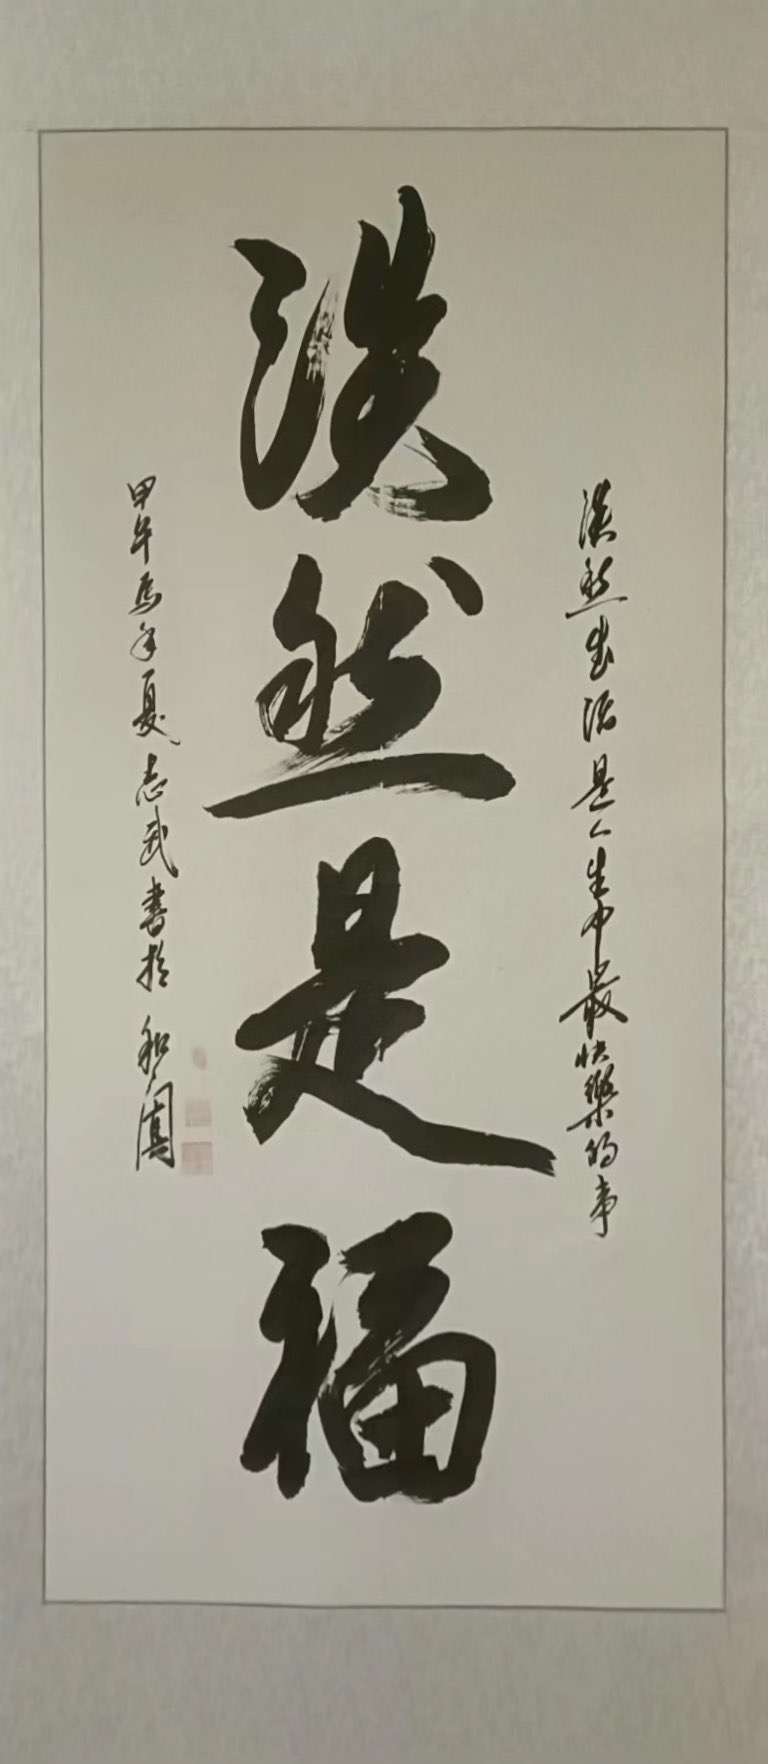 淡然生活是人生中最快樂的事
淡然是福
甲午馬年夏志武書於和園